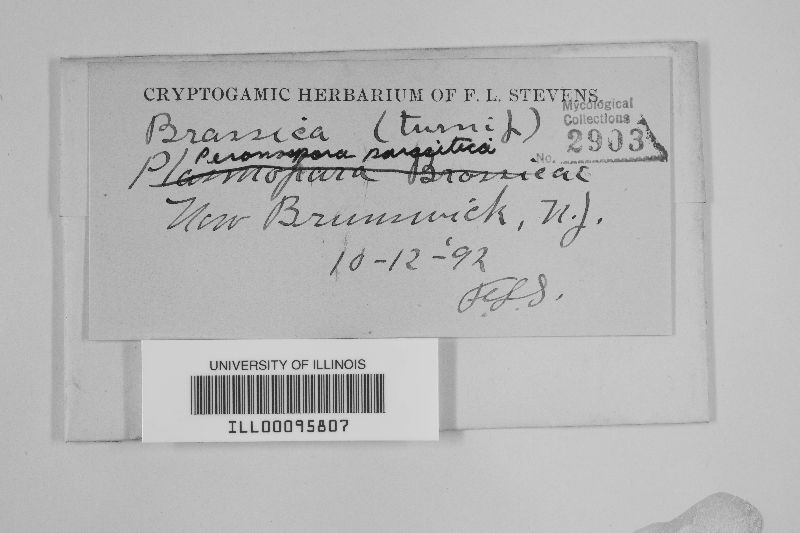 CRYPTOGAMIC HERBARIUM OF F. L. STEVENS
Mycological
Collections
No. 2903
Brassica (turnip)
Peronospora parasitica
Plasmopara Brassicae
New Brunswick, N.J.
10-12-'92
F.L.S.
UNIVERSITY OF ILLINOIS
ILL00095807